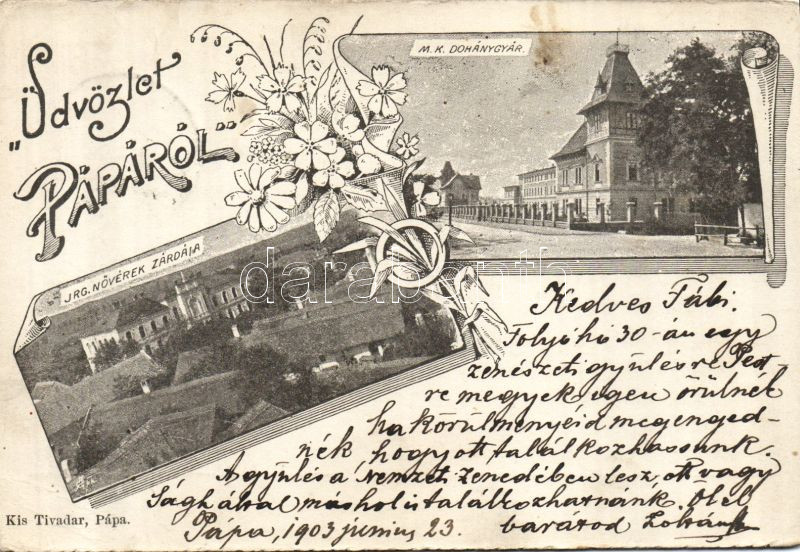 "Üdvözlet
PÁPÁRÓL"
M. K. DOHÁNYGYÁR.
JRG. NŐVÉREK ZÁRDÁJA
darabanth.com
Kedves Fábi.
Folyó hó 30-án egy
zenészeti gyűlésre Pest
re megyek igen örülnék
ha körülményeid megenged-
nék hogy ott találkozhassunk.
A gyűlés a Nemzeti Zenedében lesz, ott vagy
Ságh által máshol is találkozhatnánk. Ölel
Pápa, 1903 június 23. barátod
Kis Tivadar, Pápa.